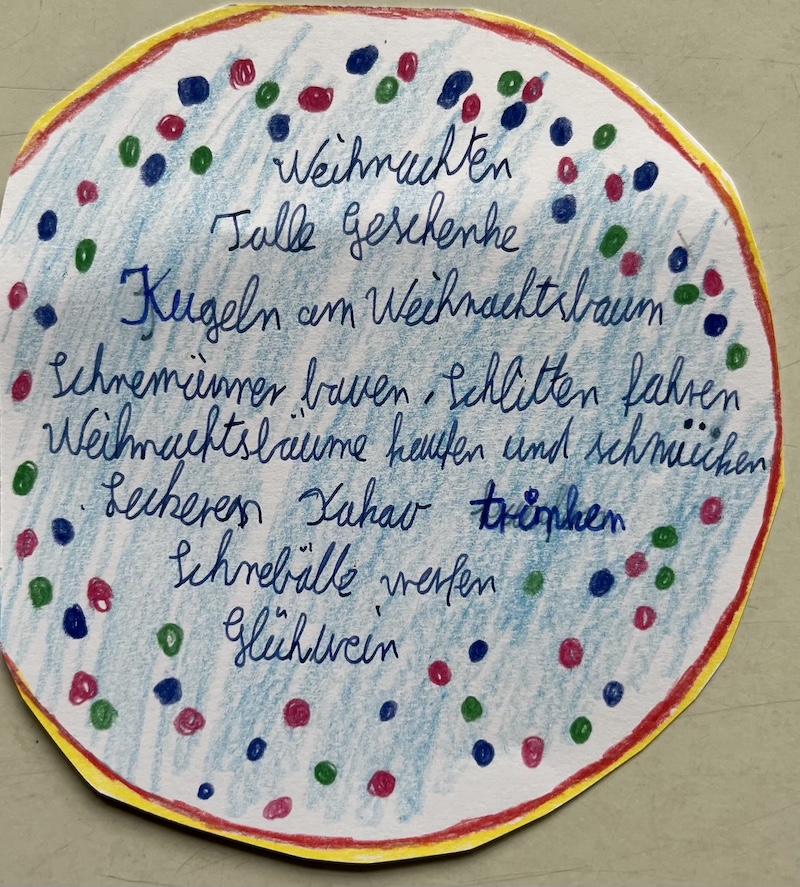 Weihnachten
Tolle Geschenke
Kugeln am Weihnachtsbaum
Schnemänner bauen, Schlitten fahren
Weihnachtsbäume kaufen und schmücken
Leckeren Kakao trinken
Schnebälle werfen
Glühwein